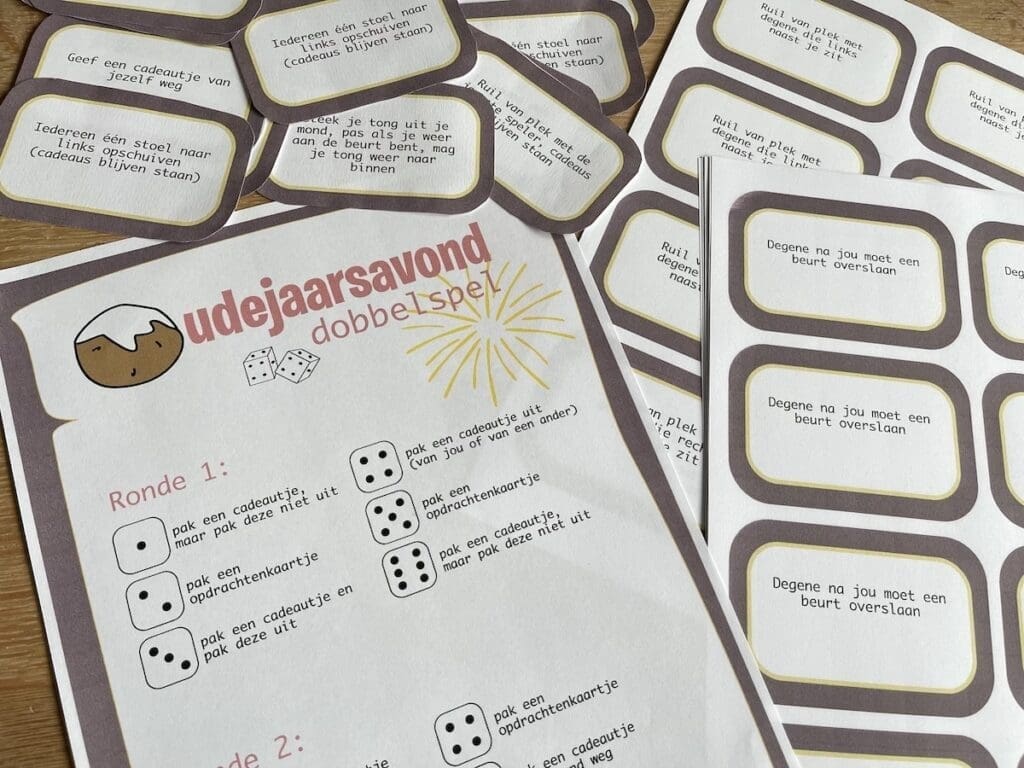 Iedereen één stoel naar
links opschuiven
(cadeaus blijven staan)
Geef een cadeautje van
jezelf weg
één stoel naar
opschuiven
blijven staan)
Iedereen één stoel naar
links opschuiven
(cadeaus blijven staan)
je tong uit je
mond, pas als je weer
aan de beurt bent, mag
je tong weer naar
binnen
Ruil van plek met de
speler, cadeaus
blijven staan
Ruil van plek met
degene die links
naast je zit
Ruil van plek met
degene die links
naast je zit
Ruil van
degene
naast
Ruil van
degene
naast
van plek
die rech
je zit
Degene na jou moet een
beurt overslaan
Degene na jou moet een
beurt overslaan
Degene na jou moet een
beurt overslaan
udejaarsavond
dobbelspel
Ronde 1:
pak een cadeautje,
maar pak deze niet uit
pak een
opdrachtenkaartje
pak een cadeautje en
pak deze uit
pak een cadeautje uit
(van jou of van een ander)
pak een
opdrachtenkaartje
pak een cadeautje,
maar pak deze niet uit
nde 2:
pak een
opdrachtenkaartje
een cadeautje
weg